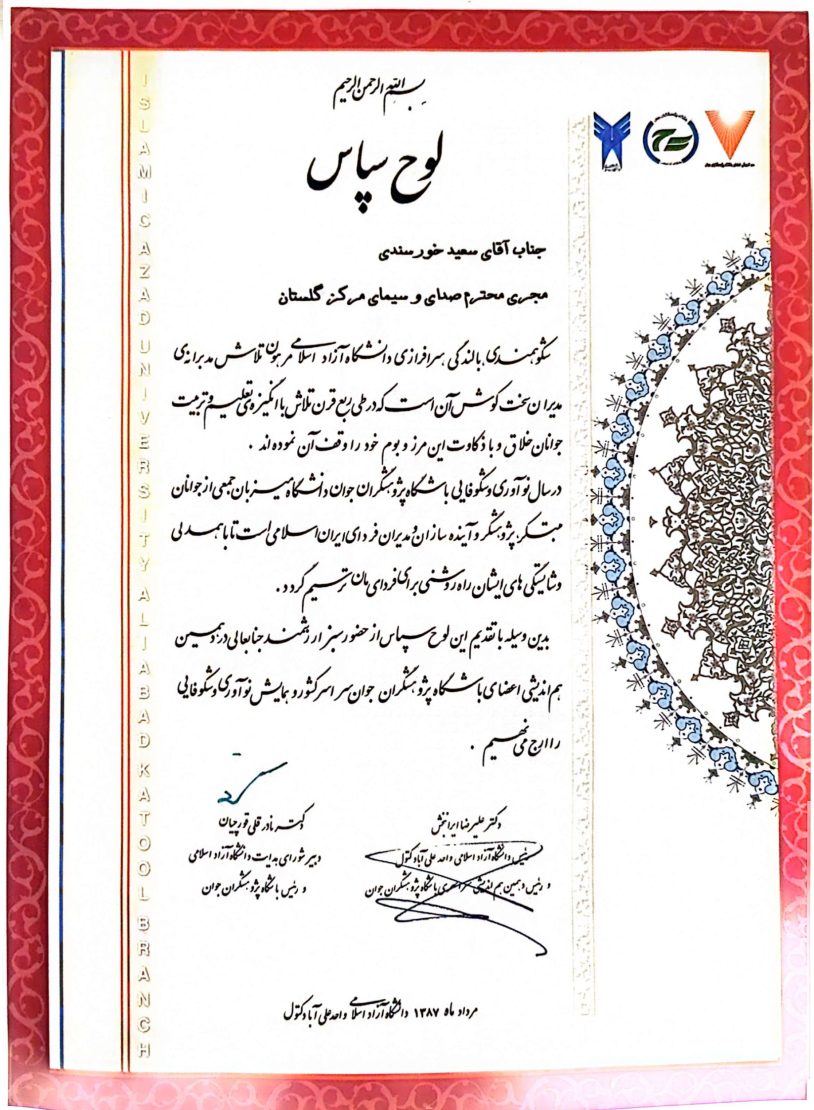 بسم الله الرحمن الرحیم
لوح سپاس
جناب آقای سعید خورسندی
مجری محترم صدای و سیمای مرکز گلستان
شکوهمندی، بالندگی، سرافرازی دانشگاه آزاد اسلامی مرهون تلاش مدبرانه‌ی
مدیران سخت کوش آن است که در طی ربع قرن تلاش با انگیزه‌ی تعلیم و تربیت
جوانان خلاق و با ذکاوت این مرز و بوم خود را وقف آن نموده اند .
در سال نوآوری و شکوفایی باشگاه پژوهشگران جوان دانشگاه میزبان جمعی از جوانان
مبتکر، پژوهشگر و آینده سازان و مدیران فردای ایران اسلامی است تا با همدلی
و شایستگی های ایشان راه روشنی برای فردای مان ترسیم گردد .
بدین وسیله با تقدیم این لوح سپاس از حضور سبز ارزشمند جنابعالی در دومین
هم اندیشی اعضای باشگاه پژوهشگران جوان سراسر کشور و همایش نوآوری و شکوفایی
را ارج می نهیم .
دکتر علیرضا ایرانبخش
رئیس دانشگاه آزاد اسلامی واحد علی آباد کتول
و رئیس دومین هم اندیشی سراسری باشگاه پژوهشگران جوان
دکتر نادر قلی قورچیان
دبیر شورای هدایت دانشگاه آزاد اسلامی
و رئیس باشگاه پژوهشگران جوان
مرداد ماه ۱۳۸۷ دانشگاه آزاد اسلامی واحد علی آباد کتول
ISLAMIC AZAD UNIVERSITY ALIABAD KATOOL BRANCH